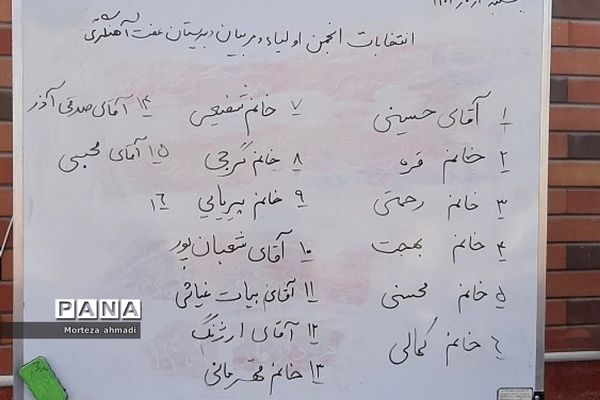 انتخابات انجمن اولیاء و مربیان دبیرستان عفت آهنگری
۱ آقای حسینی
۲ خانم قره
۳ خانم رحمتی
۴ خانم بهجت
۵ خانم محسنی
۶ خانم کمالی
۷ خانم شفیعی
۸ خانم گرجی
۹ خانم پیربابایی
۱۰ آقای شعبان پور
۱۱ آقای بیات غیاثی
۱۲ آقای ارژنگ
۱۳ خانم قهرمانی
۱۴ آقای صدقی آذر
۱۵ آقای محبی
۱۶
PANA
Morteza ahmadi